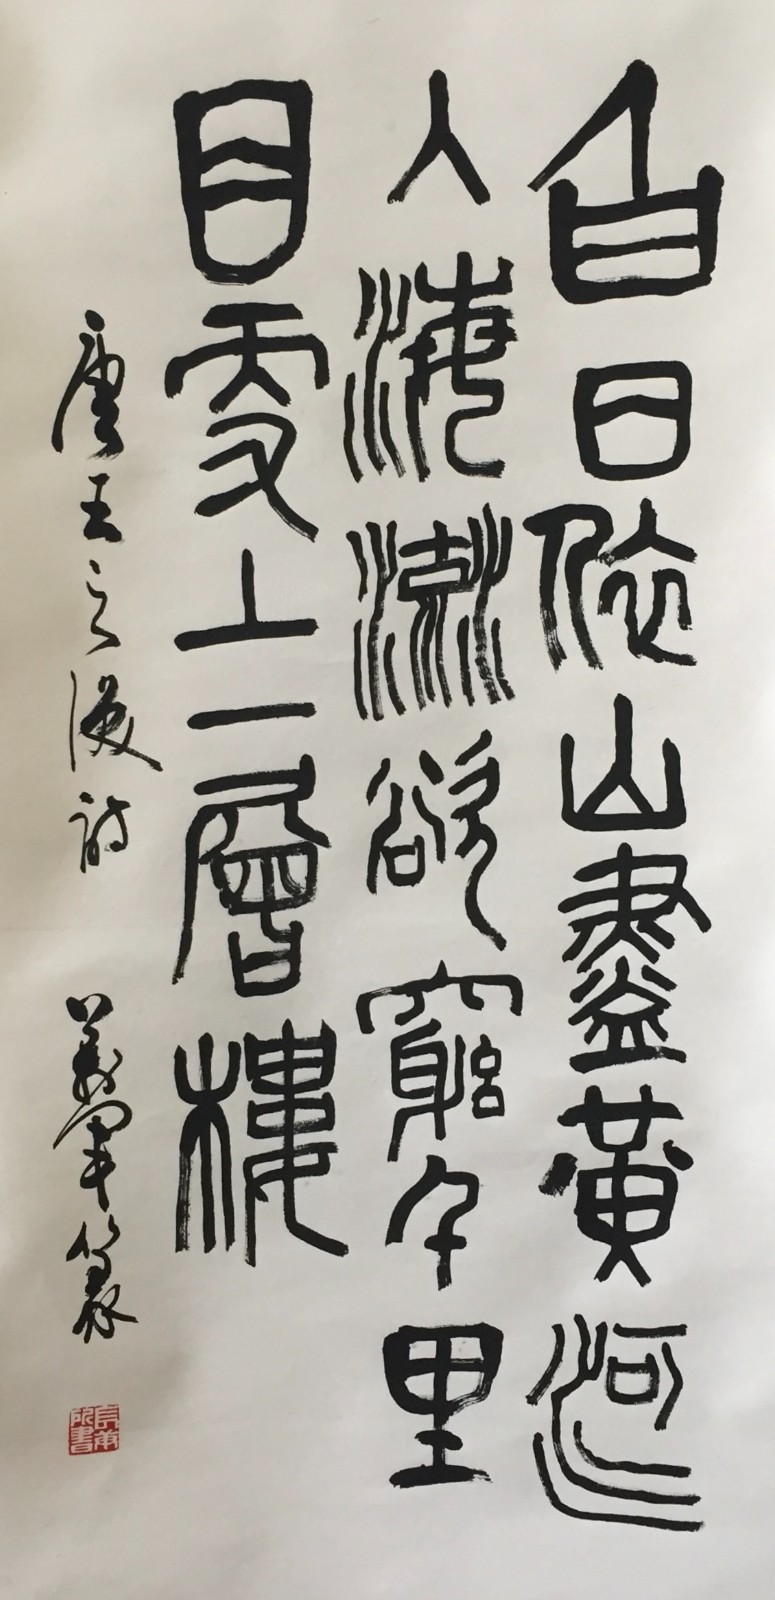 白日依山盡黃河
入海流欲窮千里
目更上一層樓
唐王之渙詩 義軍篆